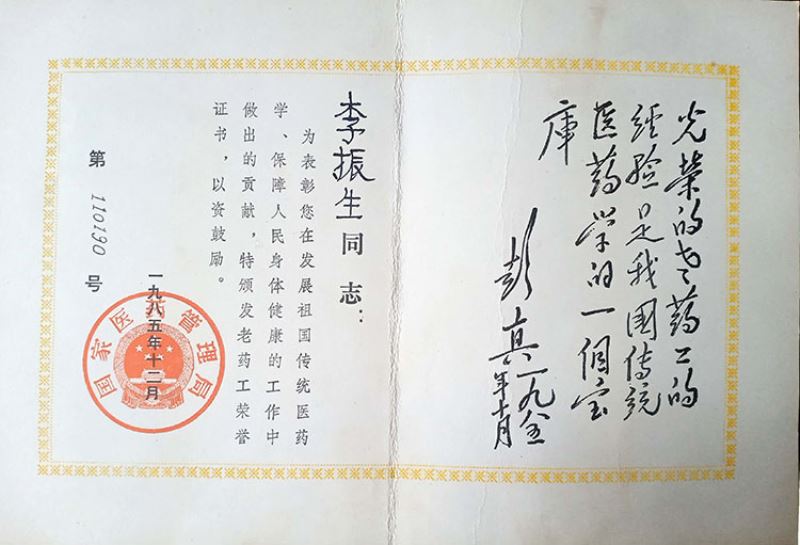 光荣的老药工的
经验是我國传统
医药学的一個宝
庫
彭真一九八五
年十月
李振生同志：
为表彰您在发展祖国传统医药
学、保障人民身体健康的工作中
做出的贡献，特颁发老药工荣誉
证书，以资鼓励。
第110190号
国家医药管理局
一九八五年十二月